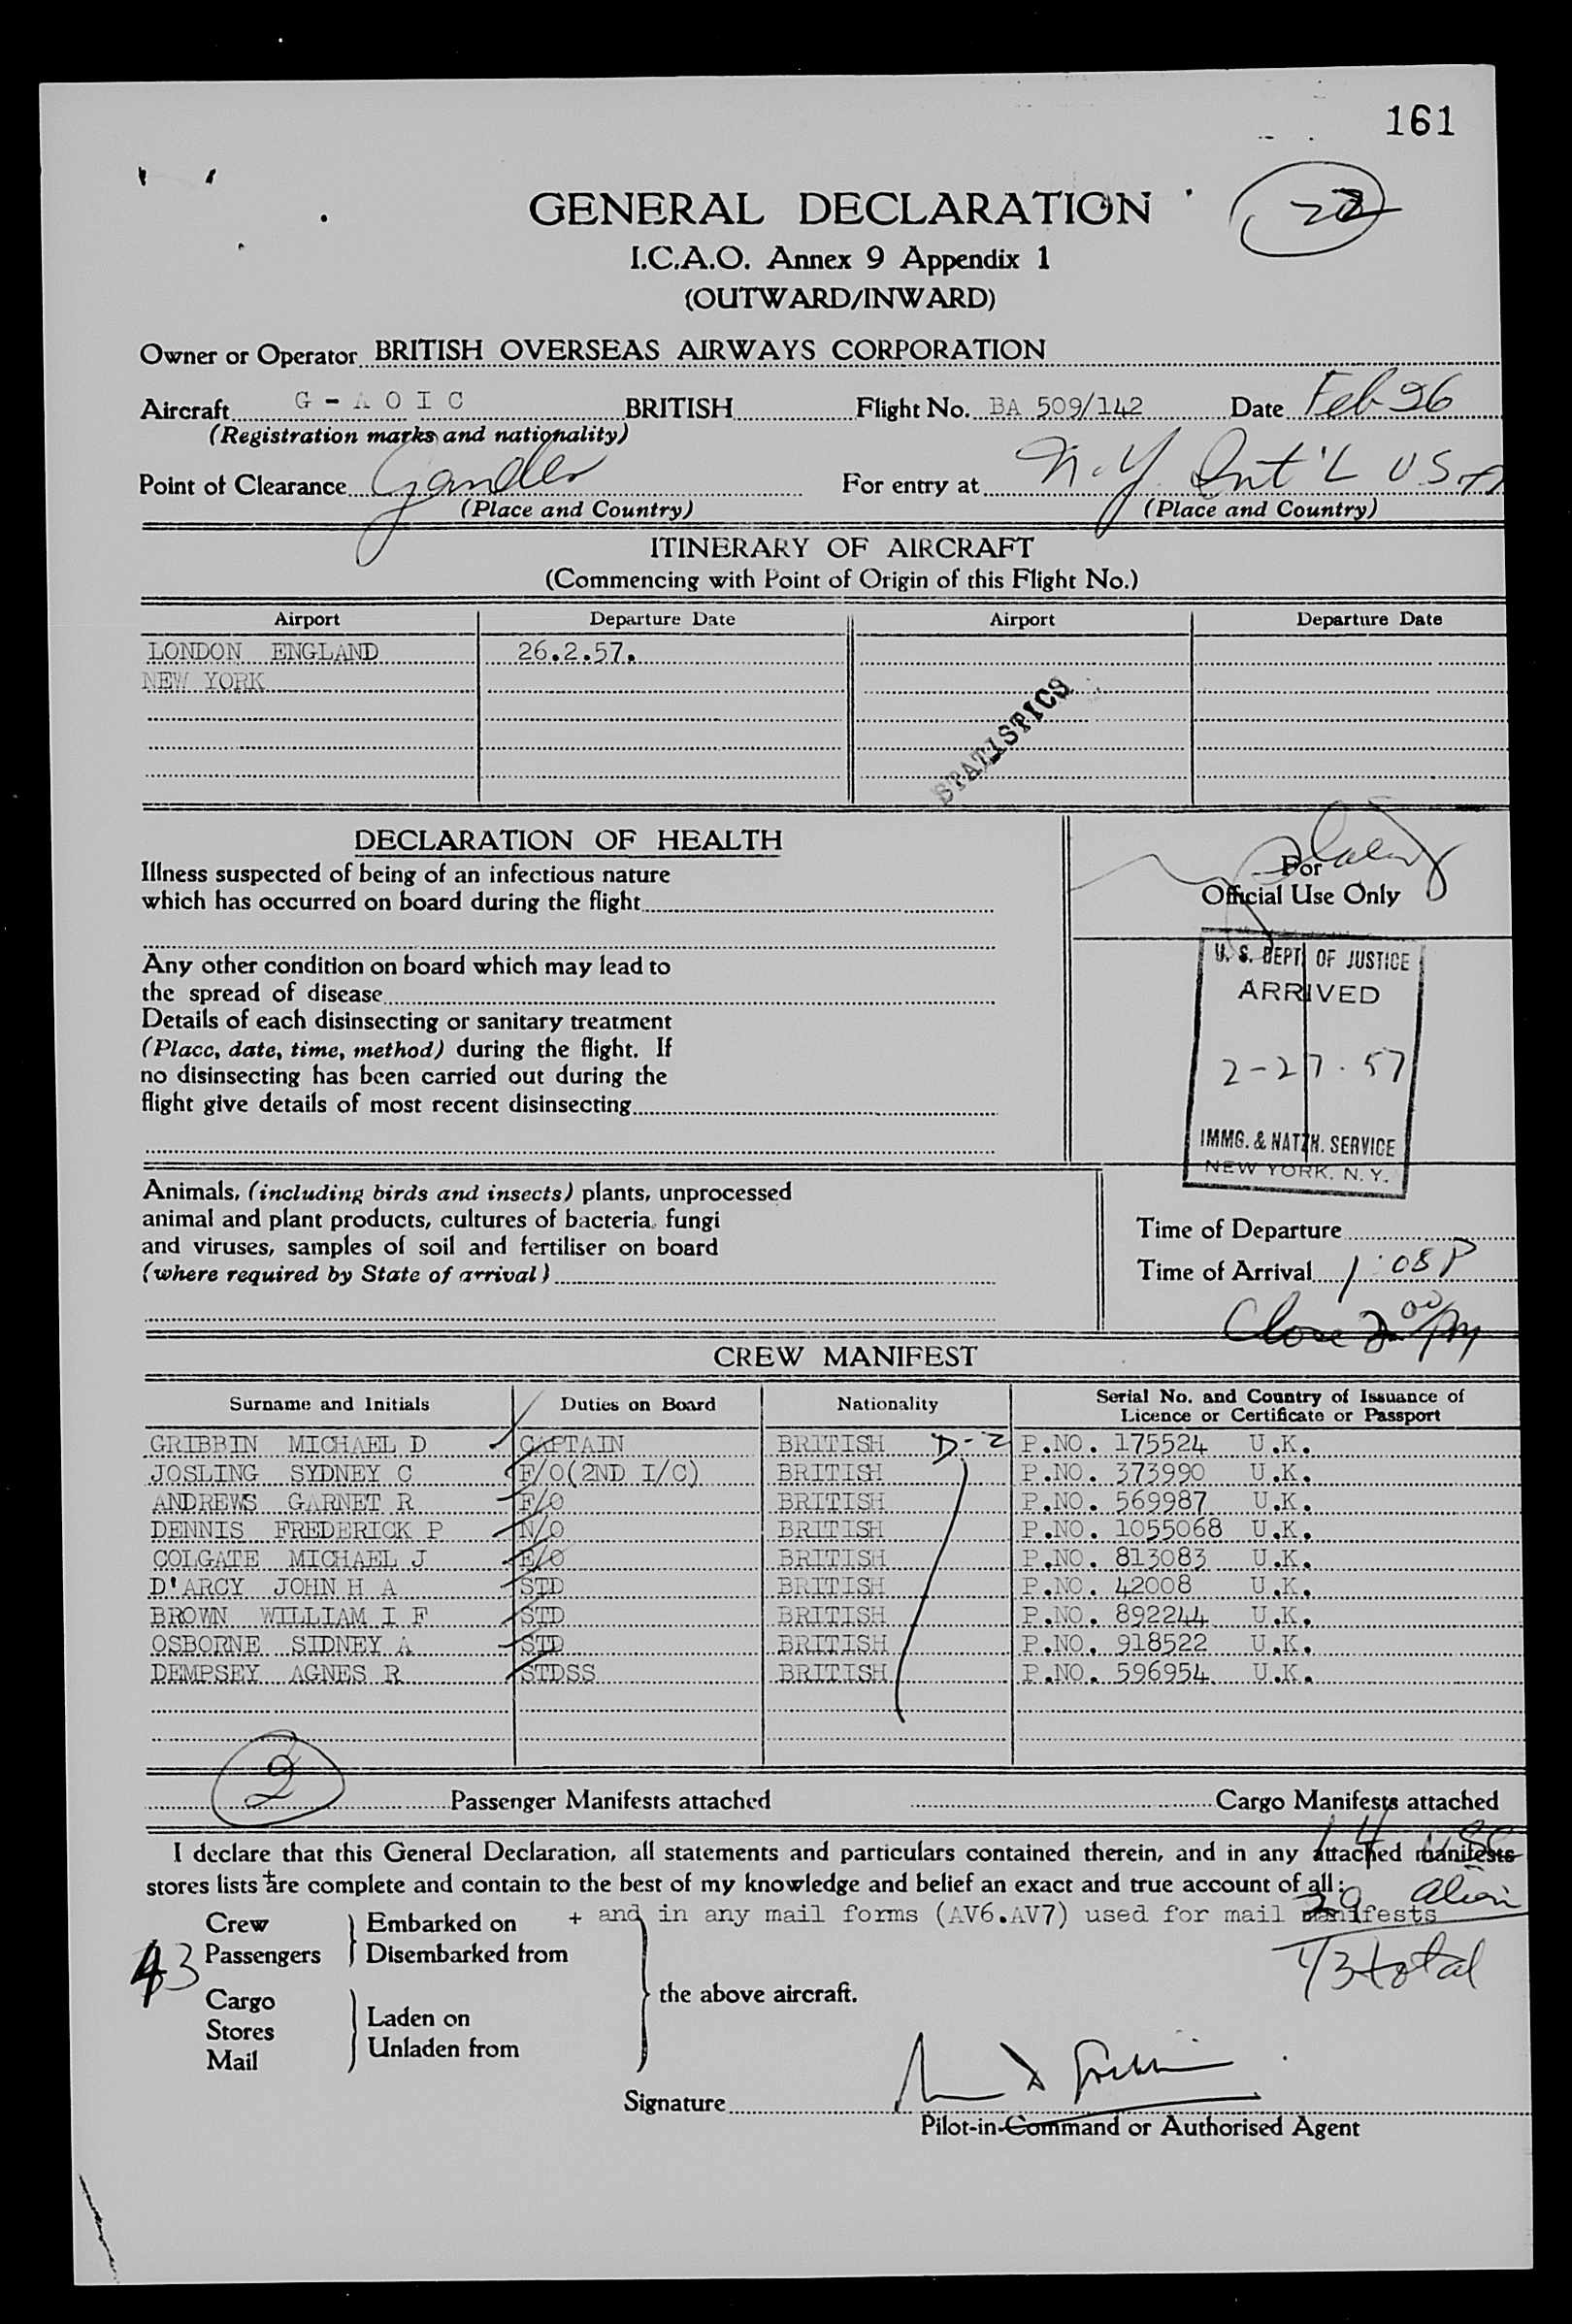 161
GENERAL DECLARATION
22
I.C.A.O. Annex 9 Appendix 1
(OUTWARD/INWARD)
Owner or Operator BRITISH OVERSEAS AIRWAYS CORPORATION
Aircraft G - A O I C BRITISH Flight No. BA 509/142 Date Feb 26
(Registration marks and nationality)
Point of Clearance Gander For entry at N.Y. Int'L USA
(Place and Country) (Place and Country)
ITINERARY OF AIRCRAFT
(Commencing with Point of Origin of this Flight No.)
Airport Departure Date Airport Departure Date
LONDON ENGLAND 26.2.57.
NEW YORK
STATISTICS
DECLARATION OF HEALTH
Illness suspected of being of an infectious nature
which has occurred on board during the flight
For
Official Use Only
Any other condition on board which may lead to
the spread of disease
Details of each disinsecting or sanitary treatment
(Place, date, time, method) during the flight. If
no disinsecting has been carried out during the
flight give details of most recent disinsecting
U. S. DEPT OF JUSTICE
ARRIVED
2-27.57
IMMG. & NATZN. SERVICE
NEW YORK, N. Y.
Animals, (including birds and insects) plants, unprocessed
animal and plant products, cultures of bacteria, fungi
and viruses, samples of soil and fertiliser on board
(where required by State of arrival)
Time of Departure
Time of Arrival 1:08 P
Close 2 00 PM
CREW MANIFEST
Surname and Initials Duties on Board Nationality Serial No. and Country of Issuance of
Licence or Certificate or Passport
GRIBBIN MICHAEL D CAPTAIN BRITISH D-2 P.NO. 175524 U.K.
JOSLING SYDNEY C F/O(2ND I/C) BRITISH P.NO. 373990 U.K.
ANDREWS GARNET R F/O BRITISH P.NO. 569987 U.K.
DENNIS FREDERICK P N/O BRITISH P.NO. 1055068 U.K.
COLGATE MICHAEL J E/O BRITISH P.NO. 813083 U.K.
D'ARCY JOHN H A STD BRITISH P.NO. 42008 U.K.
BROWN WILLIAM I F STD BRITISH P.NO. 892244 U.K.
OSBORNE SIDNEY A STD BRITISH P.NO. 918522 U.K.
DEMPSEY AGNES R STDSS BRITISH P.NO. 596954 U.K.
2 Passenger Manifests attached Cargo Manifests attached
14
I declare that this General Declaration, all statements and particulars contained therein, and in any attached manifests
stores lists + are complete and contain to the best of my knowledge and belief an exact and true account of all:
29 alien
+ and in any mail forms (AV6.AV7) used for mail manifests
43 total
43
Crew Embarked on
Passengers Disembarked from
the above aircraft.
Cargo
Stores Laden on
Mail Unladen from
Signature M D Gribbin
Pilot-in-Command or Authorised Agent